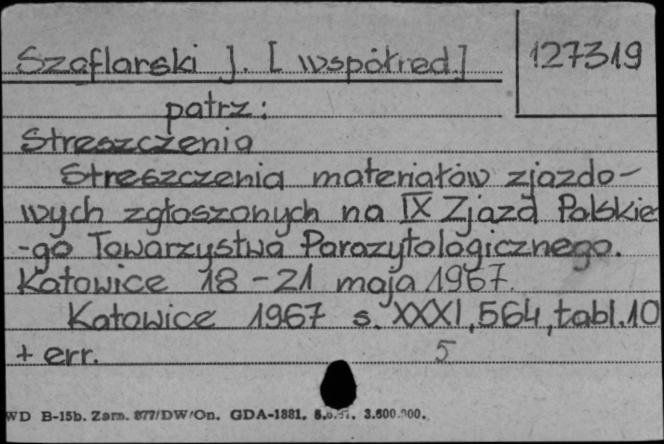 Szaflarski J. [współred] 127319
patrz:
Streszczenia
Streszczenia materiałów zjazdo-
wych zgłoszonych na IX Zjazd Polskie
-go Towarzystwa Parazytologicznego.
Katowice 18-21 maja 1967.
Katowice 1967 s. XXXI, 564, tabl. 10
+ err. 5
WD B-15b. Zam. 877/DW/On. GDA-1881. 3.600.000.